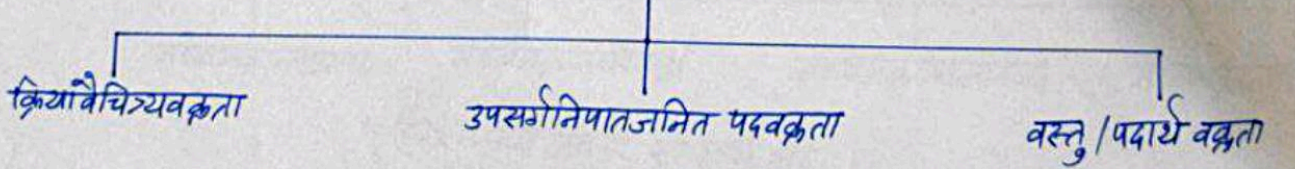 क्रियावैचित्र्यवक्रता
उपसर्गनिपातजनित पदवक्रता
वस्तु/पदार्थ वक्रता